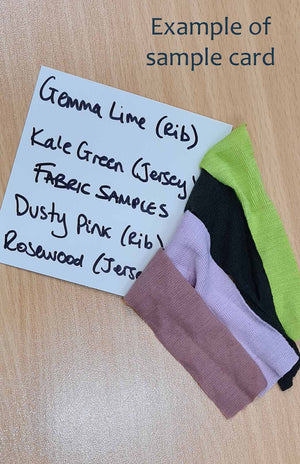 Example of
sample card
Gemma Lime (Rib)
Kale Green (Jersey)
FABRIC SAMPLES
Dusty Pink (Rib)
Rosewood (Jerse